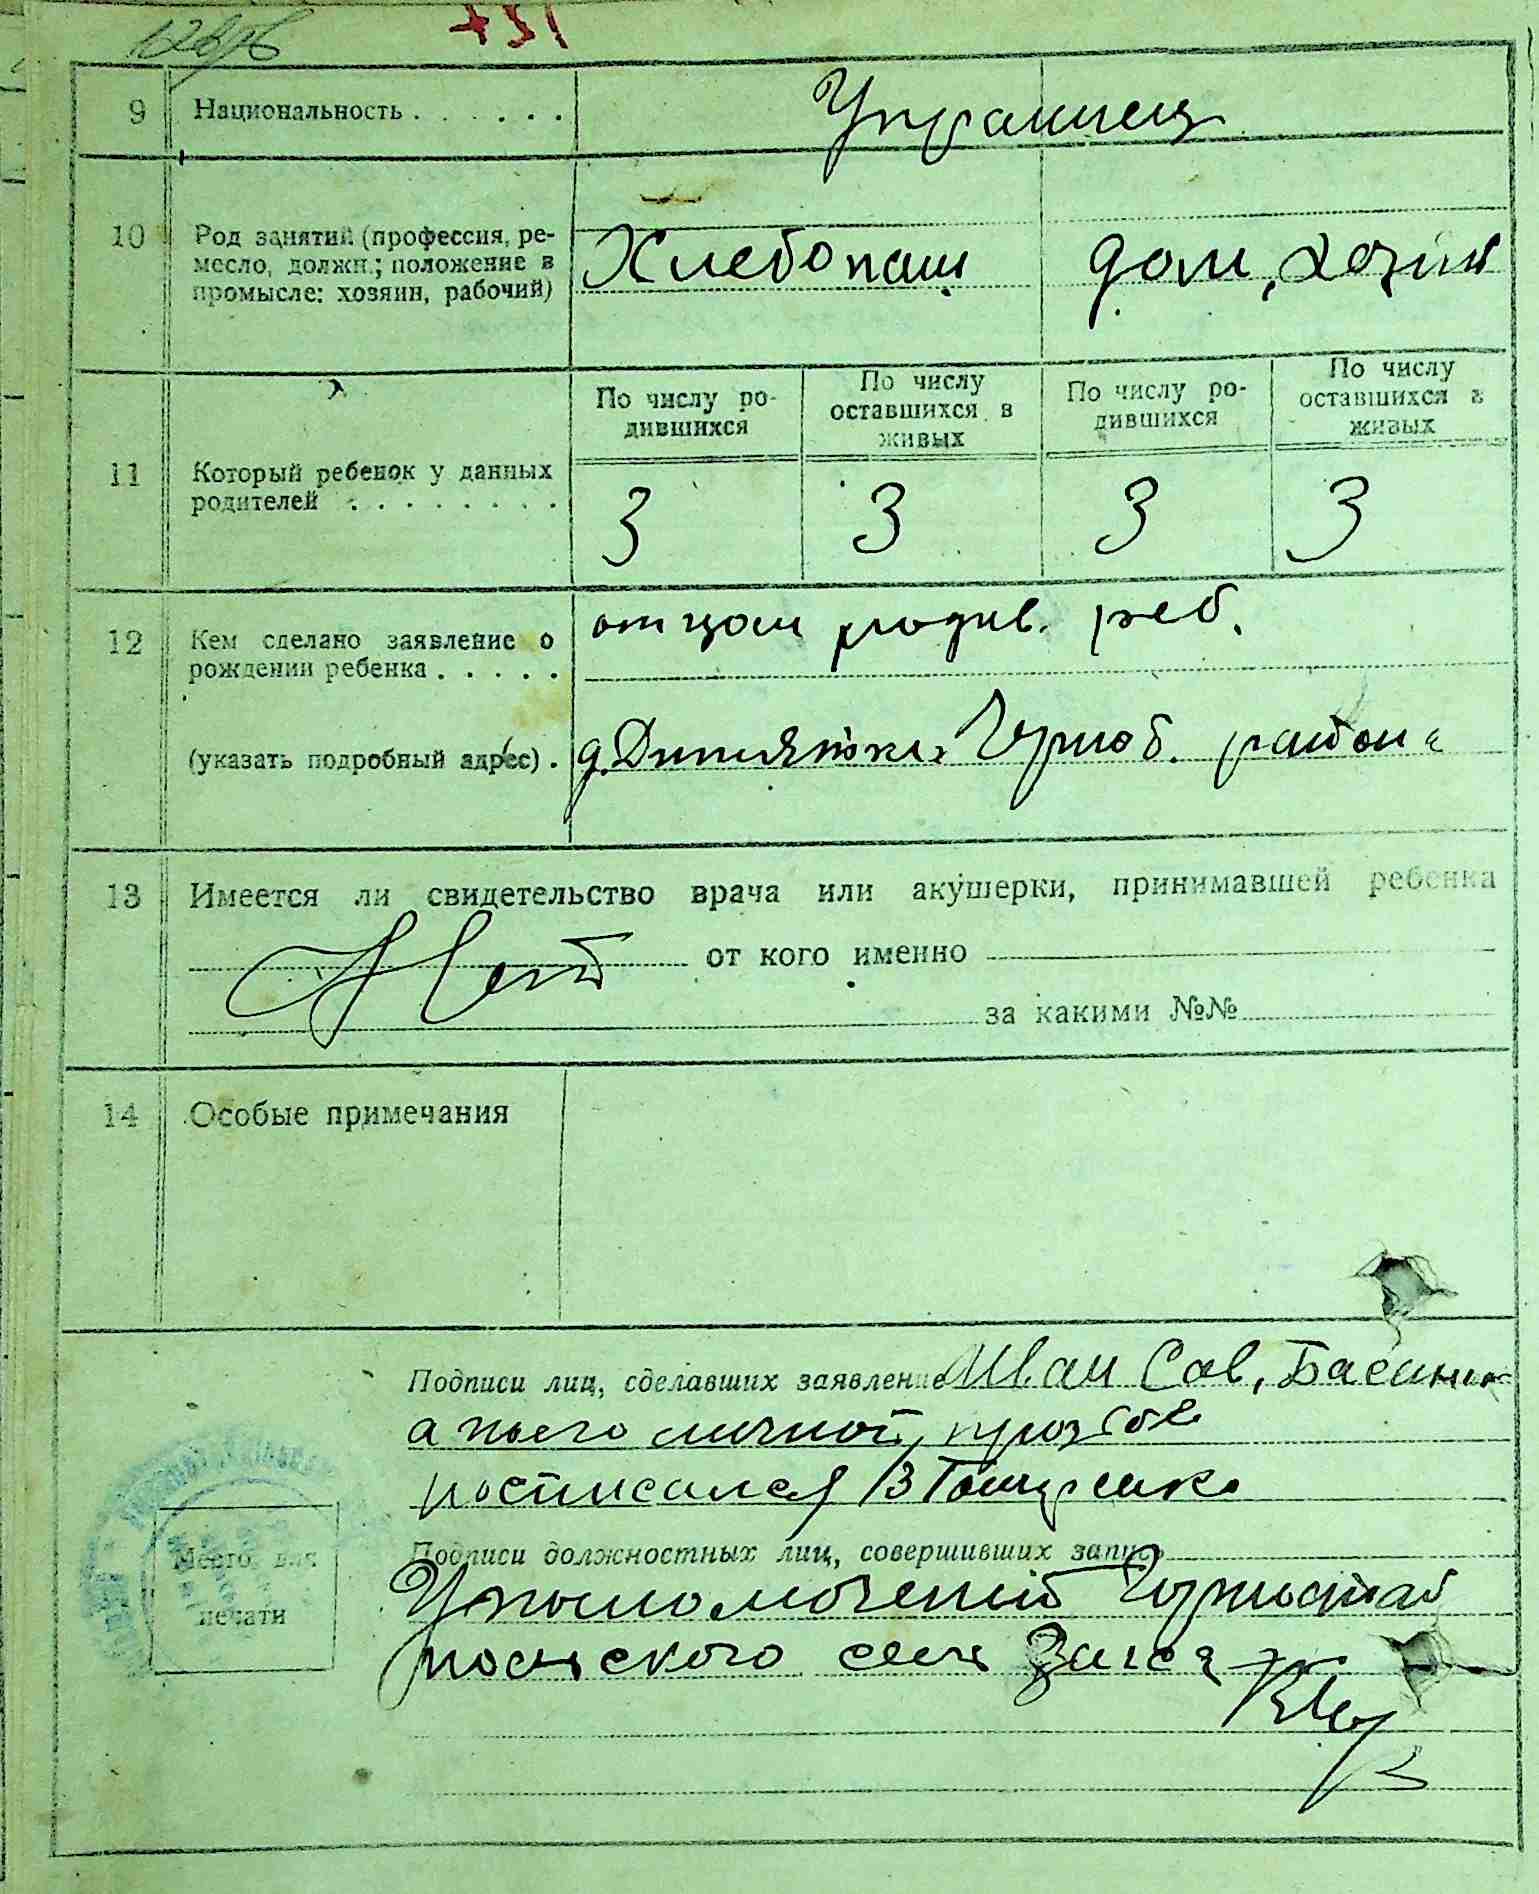 +31
9 Национальность . . . . . .
Украинец
10 Род занятий (профессия, ре-
месло, должн.; положение в
промысле: хозяин, рабочий)
Хлебопаш дом, хозяй
По числу ро-
дившихся
По числу
оставшихся в
живых
По числу ро-
дившихся
По числу
оставшихся в
живых
11 Который ребенок у данных
родителей . . . . . . . .
3 3 3 3
12 Кем сделано заявление о
рождении ребенка . . . . .
отцом родив. реб.
(указать подробный адрес) .
д. Дитятки Черноб. района
13 Имеется ли свидетельство врача или акушерки, принимавшей ребенка
Нет от кого именно
за какими №№
14 Особые примечания
Подписи лиц, сделавших заявление Иван Сав,
а по его личной прозьбе
росписался В
Место для
печати
Подписи должностных лиц, совершивших запись
Уполномоченый
ского сель Загса